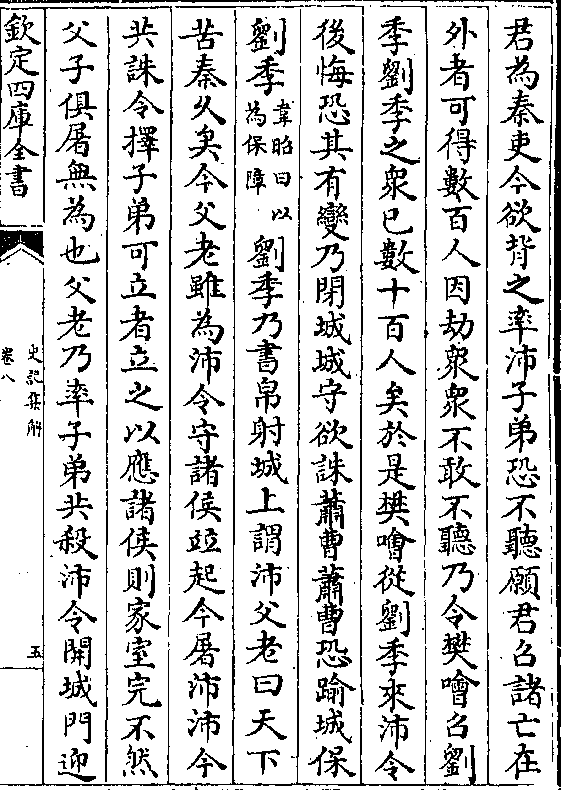 君為秦吏今欲背之率沛子弟恐不聽願君召諸亡在
外者可得數百人因劫衆衆不敢不聽乃令樊噲召劉
季劉季之衆已數十百人矣於是樊噲從劉季來沛令
後悔恐其有變乃閉城城守欲誅蕭曹蕭曹恐踰城保
劉季韋昭曰以為保障劉季乃書帛射城上謂沛父老曰天下
苦秦久矣今父老雖為沛令守諸侯竝起今屠沛沛今
共誅令擇子弟可立者立之以應諸侯則家室完不然
父子俱屠無為也父老乃率子弟共殺沛令開城門迎
欽定四庫全書
史記集解
卷八
五